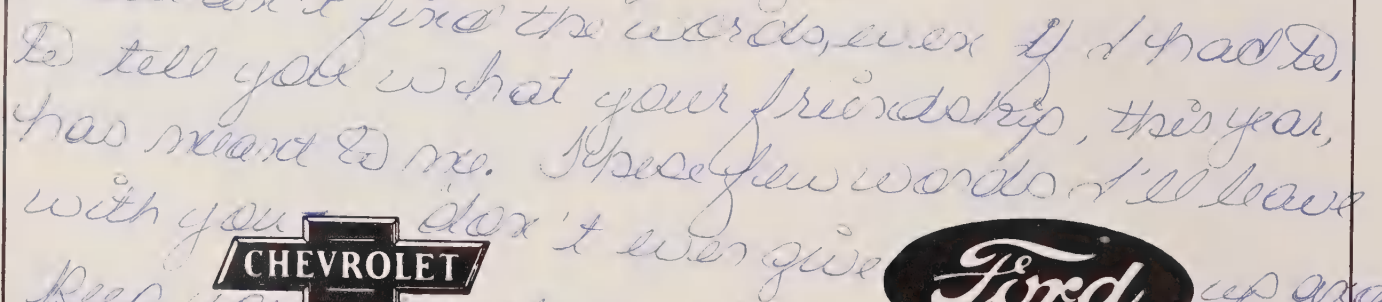 find the words, even if I had to,
to tell you what your friendship, this year,
has meant to me. These few words I'll leave
with you - don't ever give up and
CHEVROLET
Ford
keep